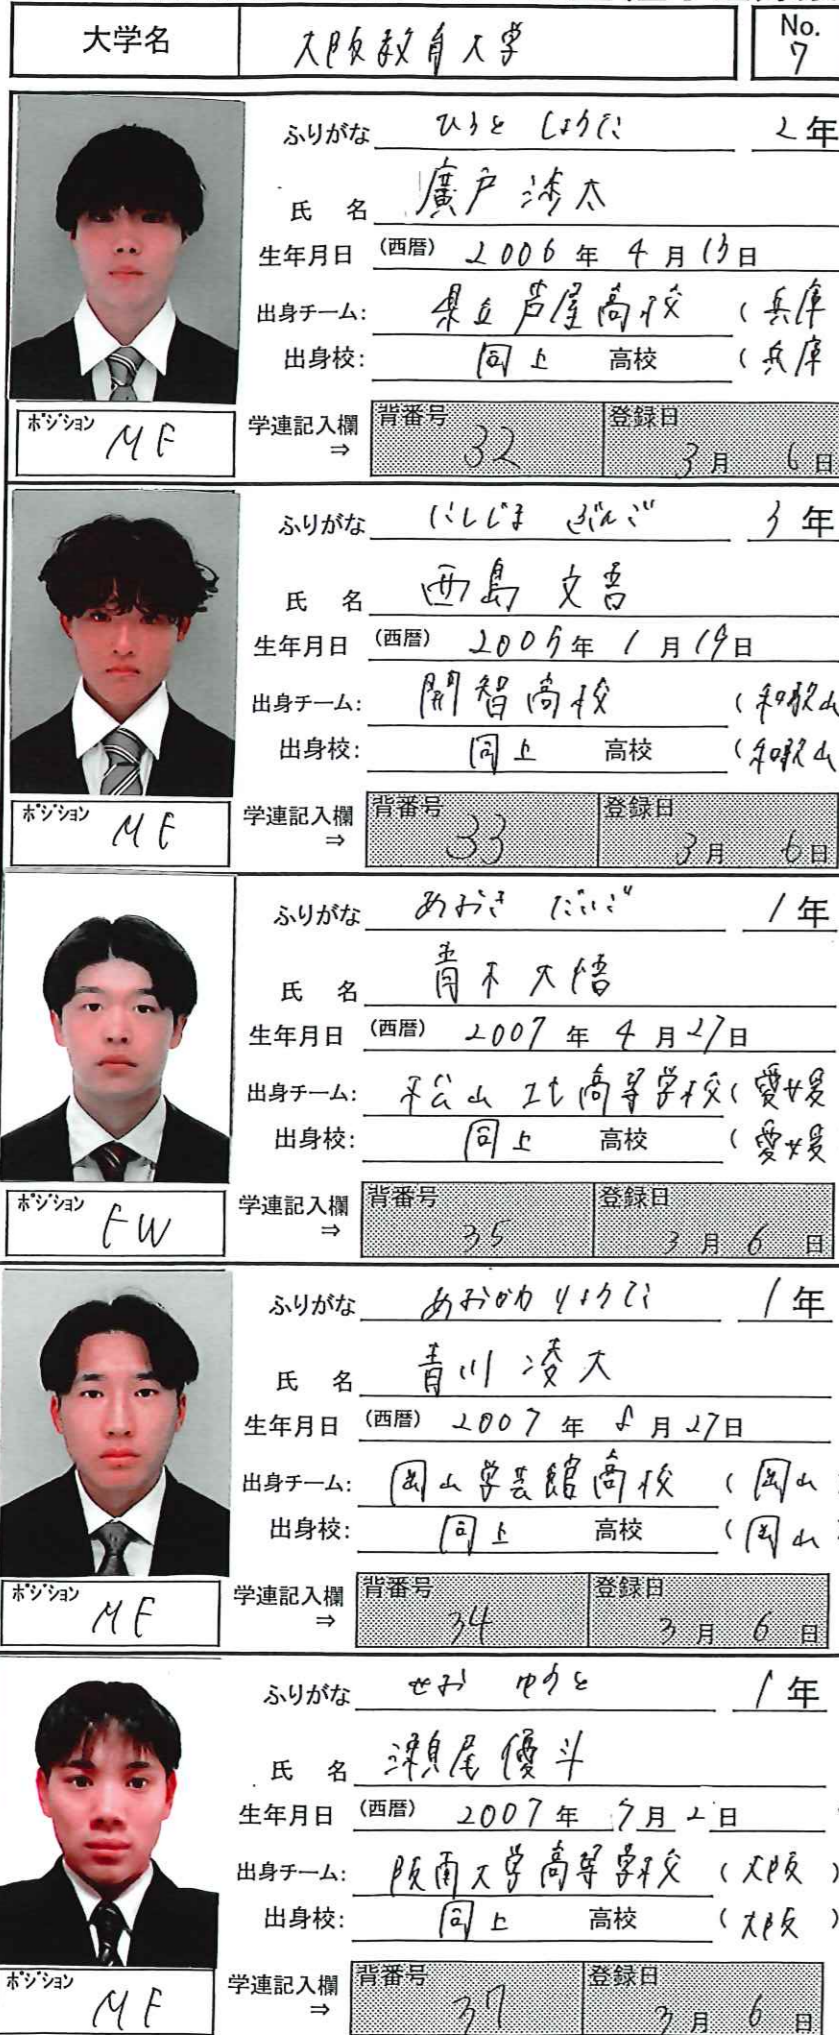 大学名 大阪教育大学 No. 7
ふりがな ひろと しょうた 2年
氏名 廣戸 渉太
生年月日 (西暦) 2006年 4月 13日
出身チーム: 県立芦屋高校 (兵庫
出身校: 同上 高校 (兵庫
ポジション MF 学連記入欄⇒ 背番号 32 登録日 3月 6日
ふりがな にしじま ぶんご 3年
氏名 西島 文吾
生年月日 (西暦) 2005年 1月 19日
出身チーム: 開智高校 (和歌山
出身校: 同上 高校 (和歌山
ポジション MF 学連記入欄⇒ 背番号 33 登録日 3月 6日
ふりがな あおき だいご 1年
氏名 青木 大悟
生年月日 (西暦) 2007年 4月 27日
出身チーム: 松山 高等学校 (愛媛
出身校: 同上 高校 (愛媛
ポジション FW 学連記入欄⇒ 背番号 35 登録日 3月 6日
ふりがな あおかわ りょうた 1年
氏名 青川 凌大
生年月日 (西暦) 2007年 8月 27日
出身チーム: 岡山学芸館高校 (岡山
出身校: 同上 高校 (岡山
ポジション MF 学連記入欄⇒ 背番号 34 登録日 3月 6日
ふりがな せお ゆうと 1年
氏名 瀬尾 優斗
生年月日 (西暦) 2007年 月 2日
出身チーム: 阪南大学高等学校 (大阪)
出身校: 同上 高校 (大阪)
ポジション MF 学連記入欄⇒ 背番号 37 登録日 3月 6日